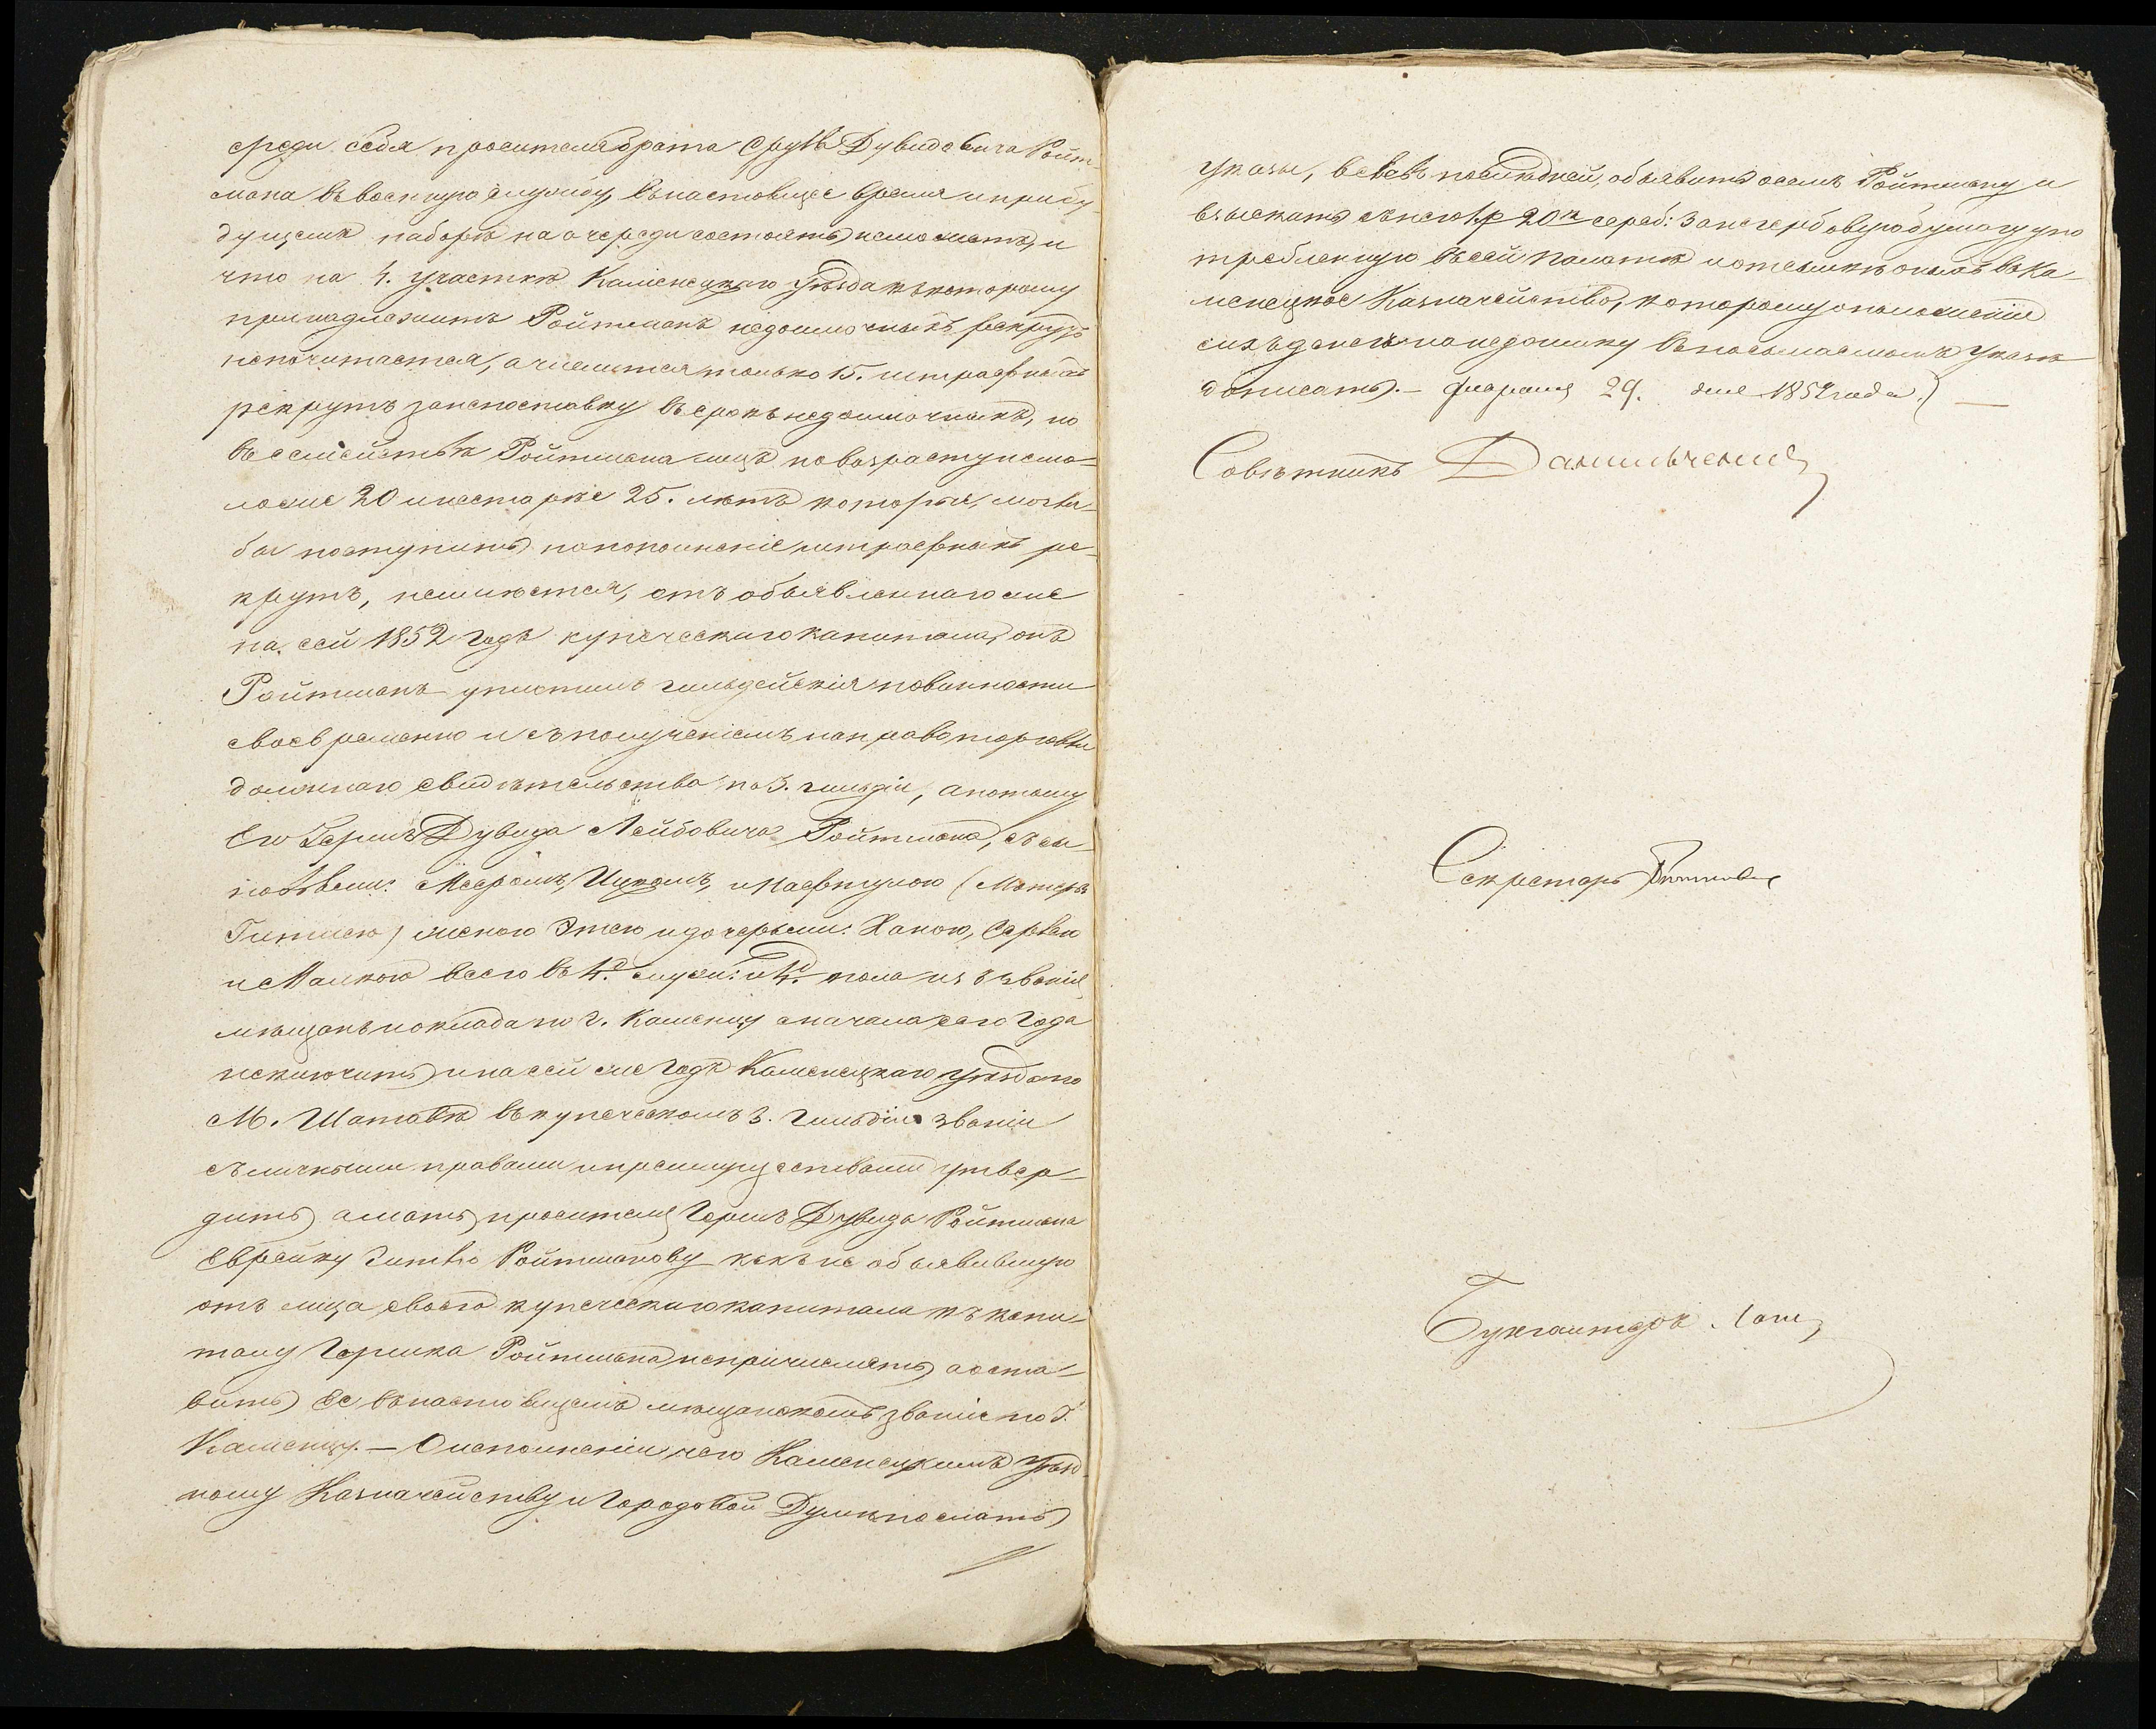 среди себя просителя брата Сруль Дувидовича Ройт-
мана въ военную службу, въ настоящее время и при бу-
дущемъ наборѣ на очереди состоять неможетъ, и
что на 4. участкѣ Каменецкаго уѣзда къ которому
принадлежитъ Ройтманъ недоимочныхъ рекрутъ
непочитается, а числится только 15. штрафныхъ
рекрутъ за непоставку въ срокъ недоимочныхъ, но
въ семействѣ Ройтмана лицъ по возрасту немо-
ложе 20 и нестарѣе 25. лѣтъ которые, могли-
бы поступить на пополненіе штрафныхъ ре-
крутъ, неимѣется, отъ объявленнаго имъ
на сей 1852 годъ купеческаго капитала, онъ
Ройтманъ уплатилъ гильдейскія повинности
своевременно и съ полученіемъ на право торговли
должнаго свидѣтельства по 3. гильдіи, а потому
Его Герша Дувида Лейбовича Ройтмана, съ сы-
новьями: Мееромъ, Ицкомъ, и Нафтулою (Матерь
Гитлею) женою Этею и дочерьми: Ханою, Сервею
и Малкою всего въ 4. муж: и 4. пола изъ званія
мѣщанъ и оклада по г. Каменцу сначала сего года
исключить и на сей же годъ Каменецкаго уѣзда по
М. Шатавѣ въ купеческомъ 3. гильдіи званіи
съ личными правами и преимуществами утвер-
дить а мать просителя Герша Дувида Ройтмана
Еврейку Гитлю Ройтманову какъ не объявившую
отъ лица своего купеческаго капитала къ капи-
талу Гершка Ройтмана непричислять а оста-
вить Ее въ настоящемъ мѣщанскомъ званіе по г.
Каменцу. — О исполненіи чего Каменецкимъ уѣзд-
ному Казначейству и Городовой Думѣ послать
указы, велѣвъ послѣдней, объявить о семъ Ройтману и
взыскать съ него 1 р 20 к сереб: за негербовую бумагу упо
требленную въ сей Палатѣ и отослать оныя въ Ка-
менецкое Казначейство, которому о положеніи
сихъ денегъ на недоимку въ посылаемомъ указѣ
дописать. — Февраля 29. дня 1852 года.
Совѣтникъ Данильченко
Секретарь
Бухгалтеръ